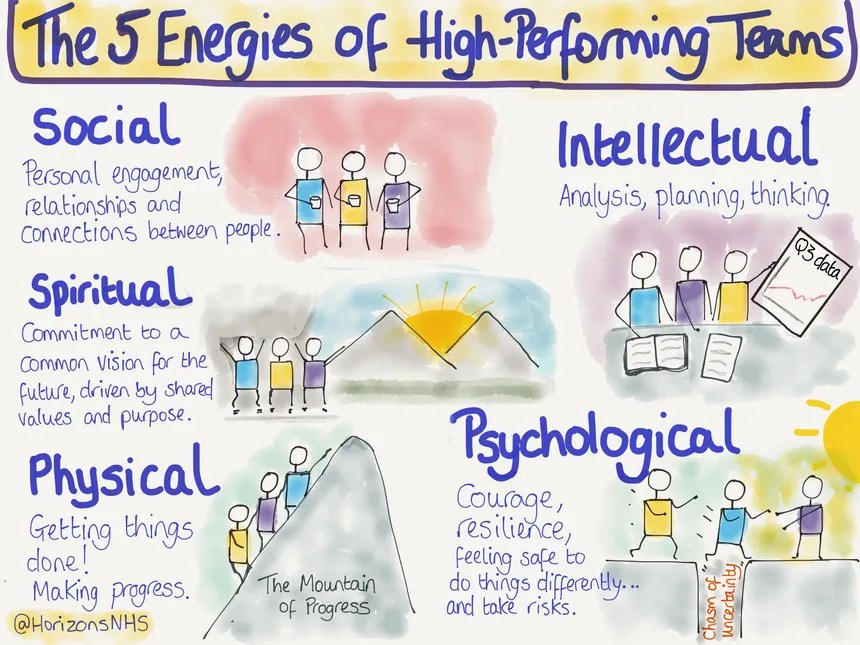 The 5 Energies of High-Performing Teams
Social
Personal engagement,
relationships and
connections between people.
Intellectual
Analysis, planning, thinking.
Q3 data
Spiritual
Commitment to a
common vision for the
future, driven by shared
values and purpose.
Physical
Getting things
done!
Making progress.
The Mountain
of Progress
Psychological
Courage,
resilience,
feeling safe to
do things differently...
and take risks.
Chasm of
Uncertainty
@HorizonsNHS